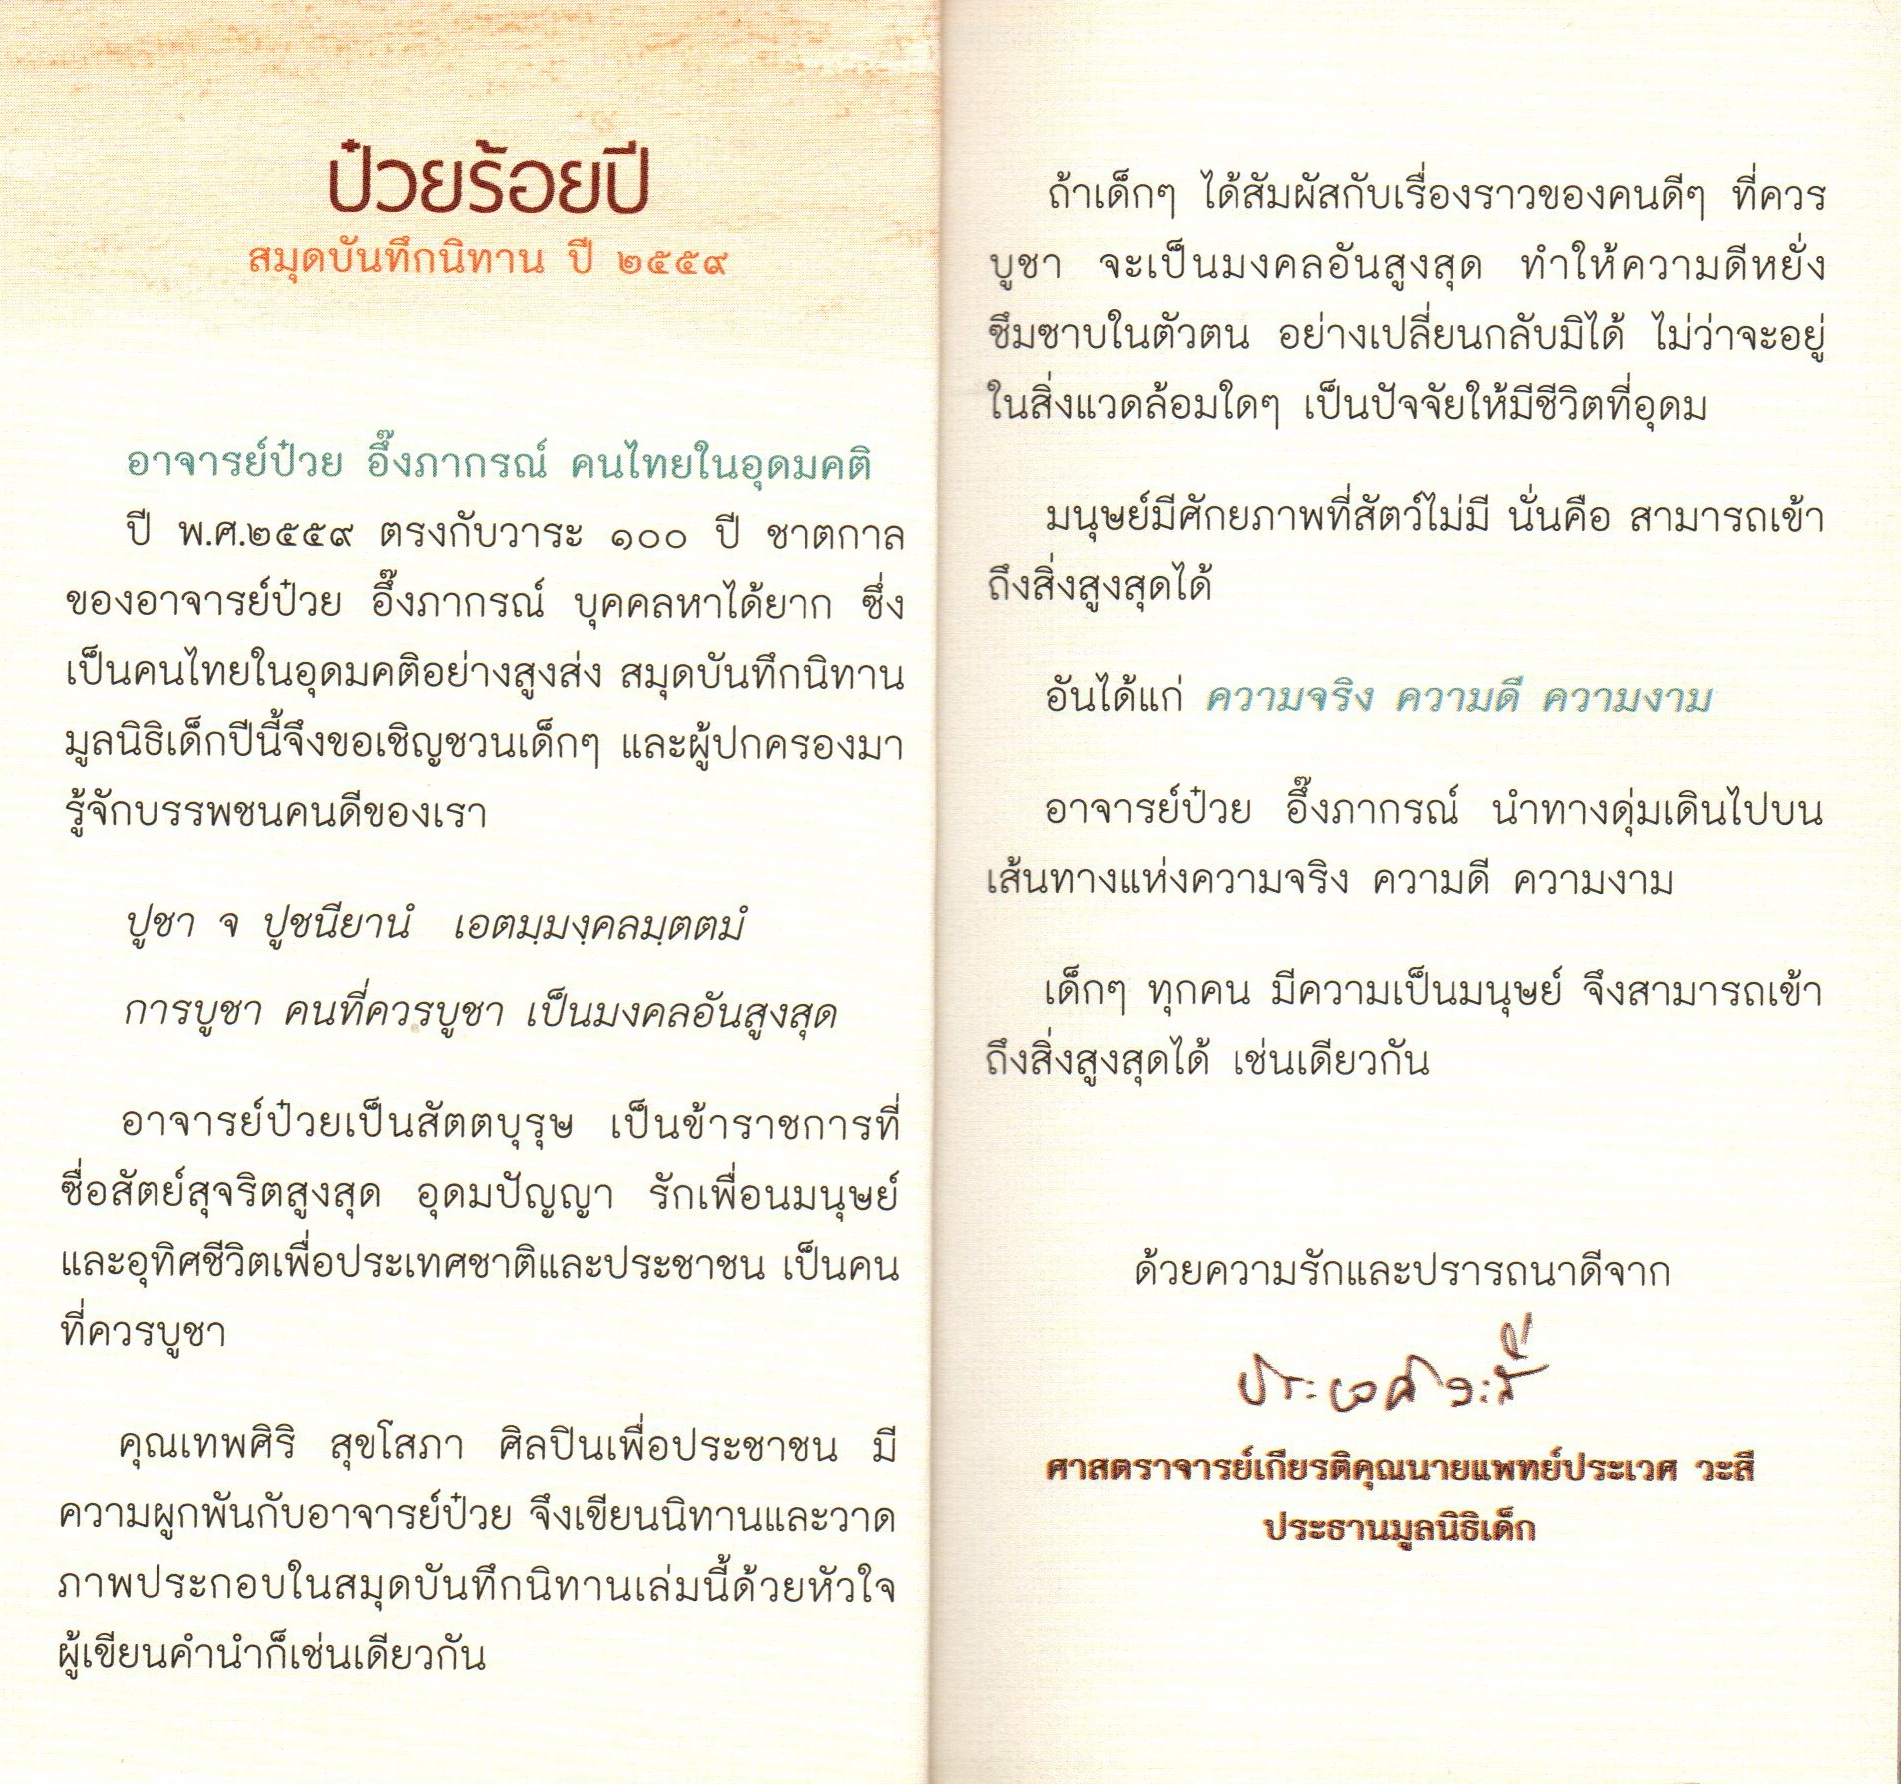 ป๋วยร้อยปี
สมุดบันทึกนิทาน ปี ๒๕๕๙
อาจารย์ป๋วย อึ๊งภากรณ์ คนไทยในอุดมคติ
ปี พ.ศ.๒๕๕๙ ตรงกับวาระ ๑๐๐ ปี ชาตกาล
ของอาจารย์ป๋วย อึ๊งภากรณ์ บุคคลหาได้ยาก ซึ่ง
เป็นคนไทยในอุดมคติอย่างสูงส่ง สมุดบันทึกนิทาน
มูลนิธิเด็กปีนี้จึงขอเชิญชวนเด็กๆ และผู้ปกครองมา
รู้จักบรรพชนคนดีของเรา
ปูชา จ ปูชนียานํ เอตมฺมงฺคลมฺตตมํ
การบูชา คนที่ควรบูชา เป็นมงคลอันสูงสุด
อาจารย์ป๋วยเป็นสัตตบุรุษ เป็นข้าราชการที่
ซื่อสัตย์สุจริตสูงสุด อุดมปัญญา รักเพื่อนมนุษย์
และอุทิศชีวิตเพื่อประเทศชาติและประชาชน เป็นคน
ที่ควรบูชา
คุณเทพศิริ สุขโสภา ศิลปินเพื่อประชาชน มี
ความผูกพันกับอาจารย์ป๋วย จึงเขียนนิทานและวาด
ภาพประกอบในสมุดบันทึกนิทานเล่มนี้ด้วยหัวใจ
ผู้เขียนคำนำก็เช่นเดียวกัน
ถ้าเด็กๆ ได้สัมผัสกับเรื่องราวของคนดีๆ ที่ควร
บูชา จะเป็นมงคลอันสูงสุด ทำให้ความดีหยั่ง
ซึมซาบในตัวตน อย่างเปลี่ยนกลับมิได้ ไม่ว่าจะอยู่
ในสิ่งแวดล้อมใดๆ เป็นปัจจัยให้มีชีวิตที่อุดม
มนุษย์มีศักยภาพที่สัตว์ไม่มี นั่นคือ สามารถเข้า
ถึงสิ่งสูงสุดได้
อันได้แก่ ความจริง ความดี ความงาม
อาจารย์ป๋วย อึ๊งภากรณ์ นำทางดุ่มเดินไปบน
เส้นทางแห่งความจริง ความดี ความงาม
เด็กๆ ทุกคน มีความเป็นมนุษย์ จึงสามารถเข้า
ถึงสิ่งสูงสุดได้ เช่นเดียวกัน
ด้วยความรักและปรารถนาดีจาก
ประเวศ วะสี
ศาสตราจารย์เกียรติคุณนายแพทย์ประเวศ วะสี
ประธานมูลนิธิเด็ก